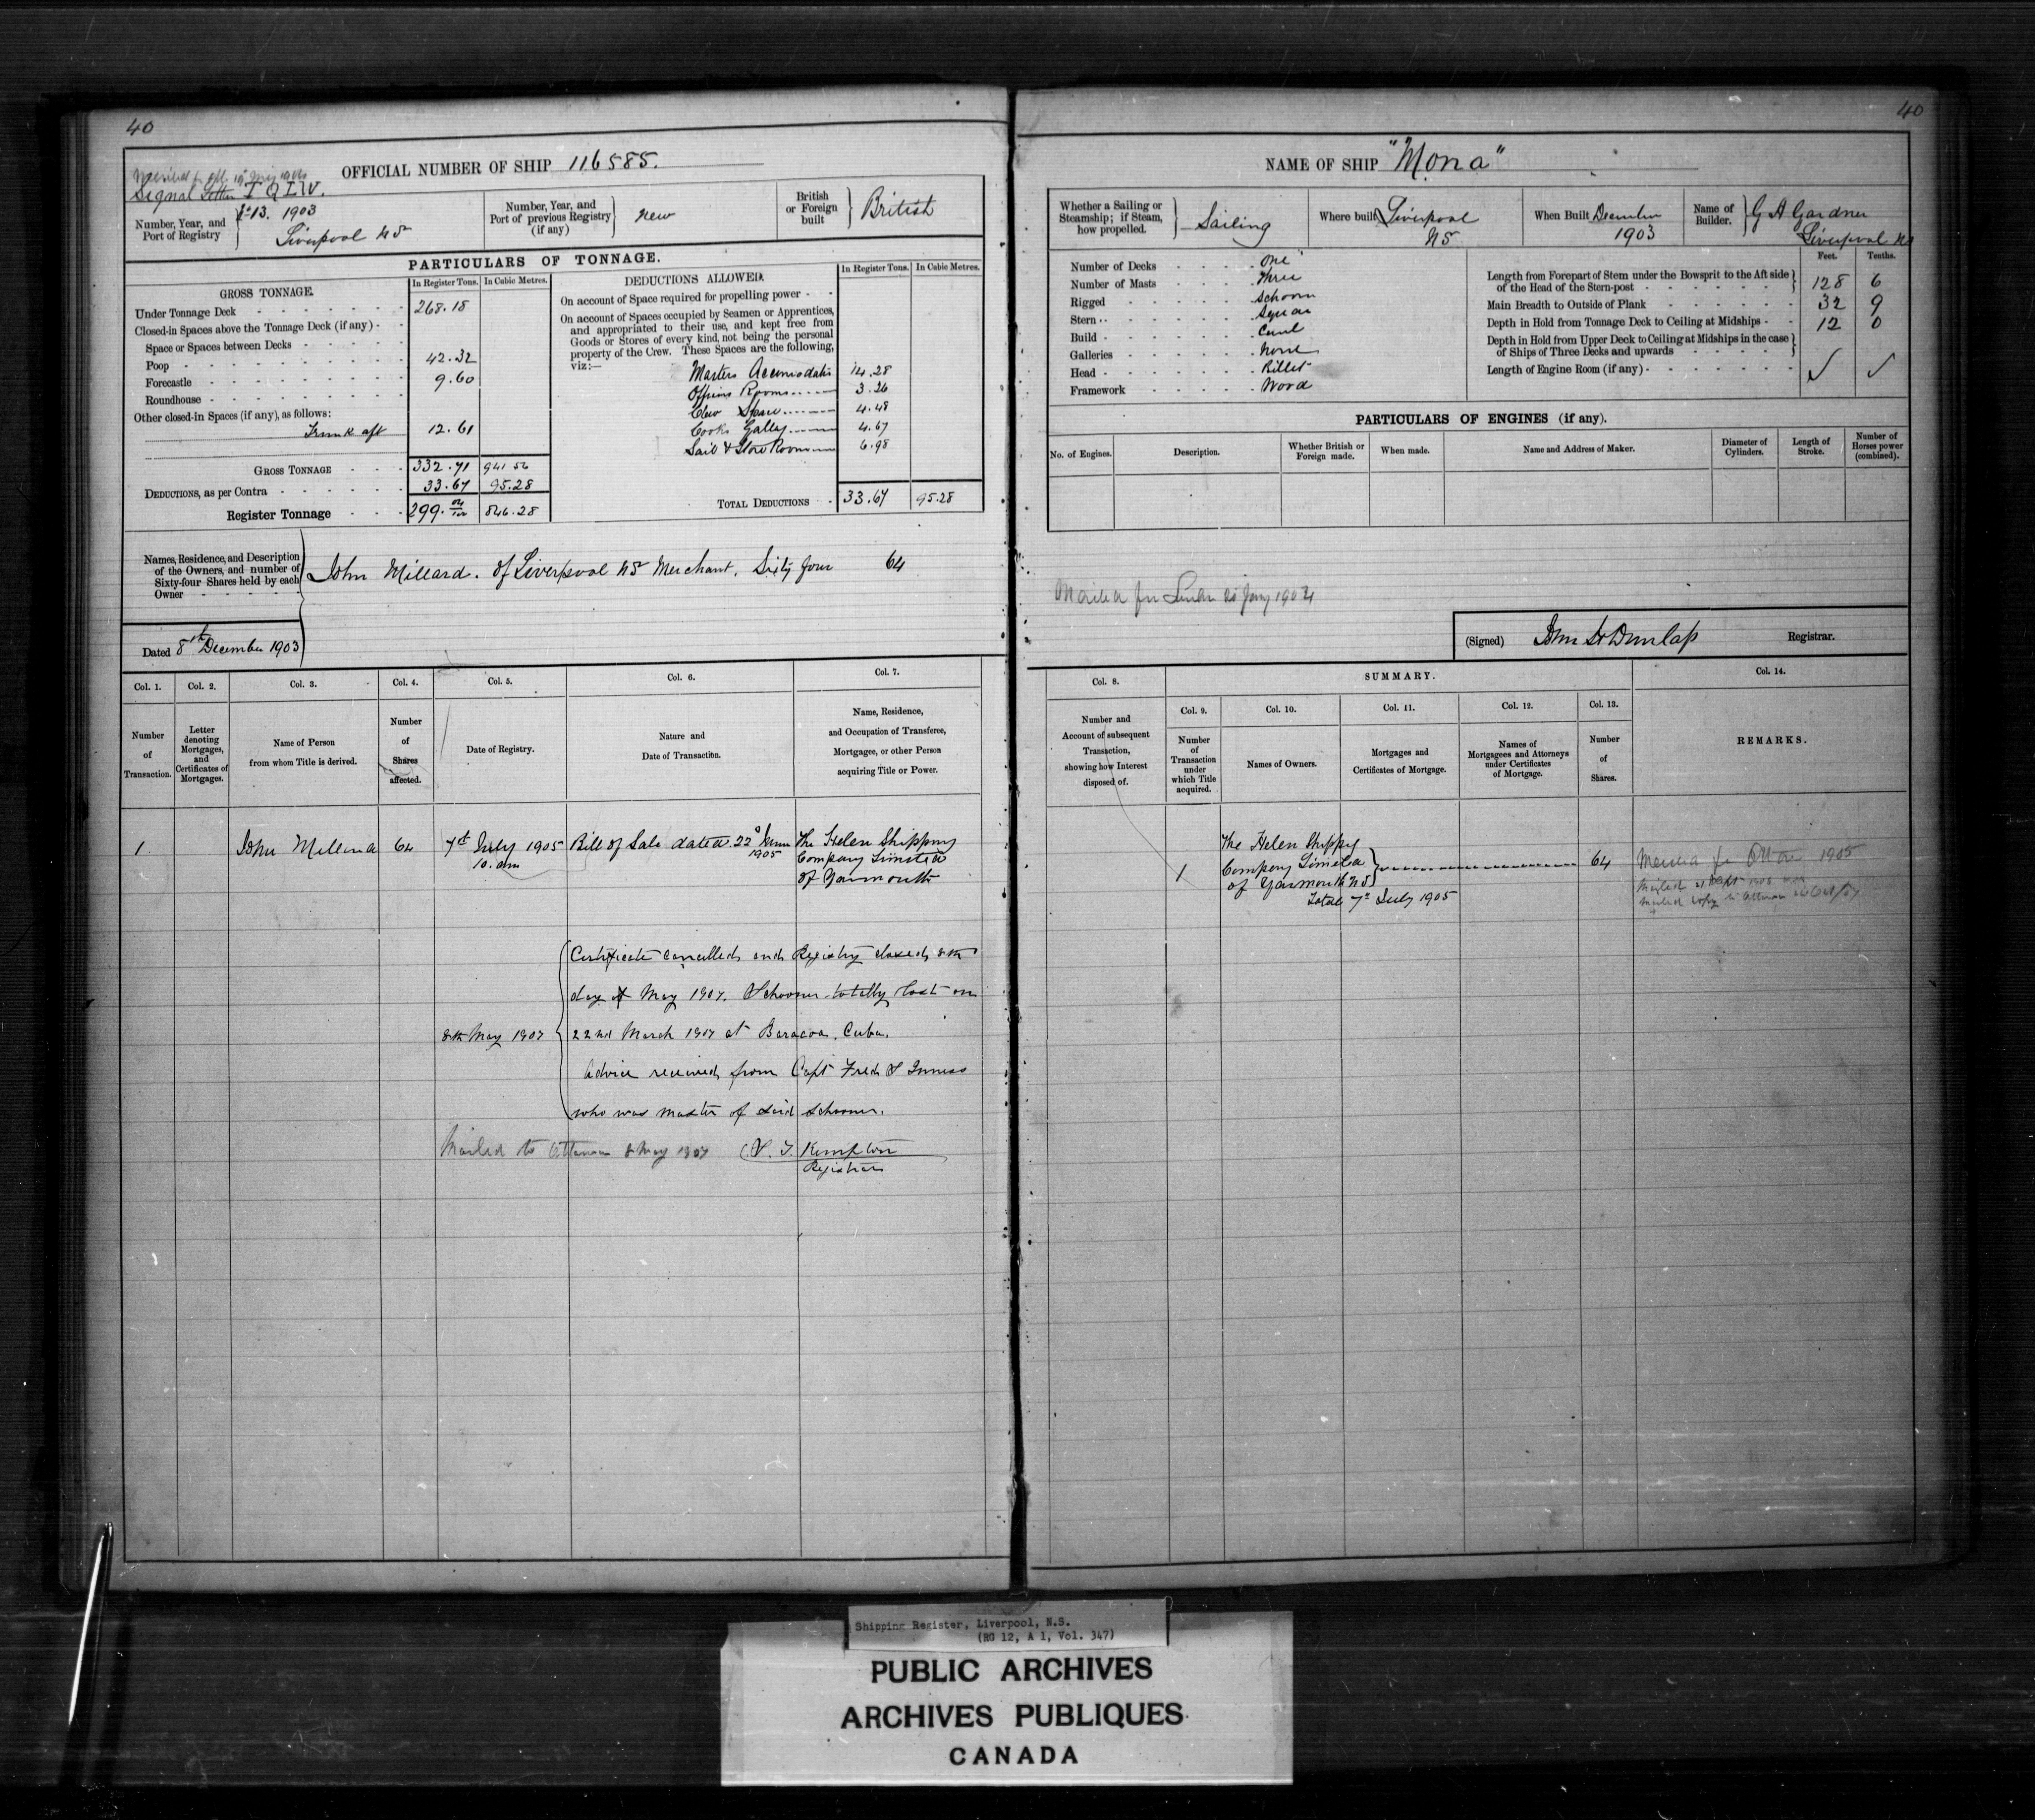 40
OFFICIAL NUMBER OF SHIP 116585.
Signal Letters T Q I W.
Number, Year, and Port of Registry } 13. 1903
Liverpool NS
Number, Year, and Port of previous Registry (if any) } New
British or Foreign built } British
PARTICULARS OF TONNAGE.
GROSS TONNAGE. In Register Tons. In Cubic Metres.
Under Tonnage Deck 268.18
Closed-in Spaces above the Tonnage Deck (if any)
Space or Spaces between Decks
Poop 42.32
Forecastle 9.60
Roundhouse
Other closed-in Spaces (if any), as follows:
Trunk aft 12.61
GROSS TONNAGE 332.71 941.56
DEDUCTIONS, as per Contra 33.67 95.28
Register Tonnage 299. 04/100 846.28
DEDUCTIONS ALLOWED. In Register Tons. In Cubic Metres.
On account of Space required for propelling power
On account of Spaces occupied by Seamen or Apprentices,
and appropriated to their use, and kept free from
Goods or Stores of every kind, not being the personal
property of the Crew. These Spaces are the following,
viz:—
Masters Accomodation 14.28
Officers Rooms 3.26
Crew Space 4.48
Cooks Galley 4.67
Sail & Store Room 6.98
TOTAL DEDUCTIONS 33.67 95.28
Names, Residence, and Description
of the Owners, and number of
Sixty-four Shares held by each
Owner
John Millard. of Liverpool NS Merchant. Sixty four 64
Dated 8th December 1903
Col. 1. Col. 2. Col. 3. Col. 4. Col. 5. Col. 6. Col. 7.
Number of Transaction.
Letter denoting Mortgages, and Certificates of Mortgages.
Name of Person from whom Title is derived.
Number of Shares affected.
Date of Registry.
Nature and Date of Transaction.
Name, Residence, and Occupation of Transferee, Mortgagee, or other Person acquiring Title or Power.
1 John Millard 64 7th July 1905 10. am Bill of Sale dated 22d June 1905 The Helen Shipping
Company Limited
of Yarmouth
8th May 1907
Certificate cancelled and Registry closed 8th
day of May 1907. Schooner totally lost on
22nd March 1907 at Baracoa. Cuba.
Advice received from Capt Fred S Inness
who was master of said schooner.
Mailed to Ottawa 8 May 1907
Kempton
Registrar
40
NAME OF SHIP "Mona"
Whether a Sailing or Steamship; if Steam, how propelled. } Sailing
Where built Liverpool NS
When Built December 1903
Name of Builder. } G A Gardner
Liverpool NS
Number of Decks One
Number of Masts Three
Rigged Schoon
Stern Square
Build Carvel
Galleries None
Head Billet
Framework Wood
Feet. Tenths.
Length from Forepart of Stem under the Bowsprit to the Aft side of the Head of the Stern-post 128 6
Main Breadth to Outside of Plank 32 9
Depth in Hold from Tonnage Deck to Ceiling at Midships 12 0
Depth in Hold from Upper Deck to Ceiling at Midships in the case of Ships of Three Decks and upwards
Length of Engine Room (if any)
PARTICULARS OF ENGINES (if any).
No. of Engines. Description. Whether British or Foreign made. When made. Name and Address of Maker. Diameter of Cylinders. Length of Stroke. Number of Horses power (combined).
(Signed) John H Dunlap Registrar.
Col. 8. SUMMARY. Col. 14.
Col. 9. Col. 10. Col. 11. Col. 12. Col. 13.
Number and Account of subsequent Transaction, showing how Interest disposed of.
Number of Transaction under which Title acquired.
Names of Owners.
Mortgages and Certificates of Mortgage.
Names of Mortgagees and Attorneys under Certificates of Mortgage.
Number of Shares.
REMARKS.
1 The Helen Shippg
Company Limited
of Yarmouth NS 64
7th July 1905
Shipping Register, Liverpool, N.S.
(RG 12, A 1, Vol. 347)
PUBLIC ARCHIVES
ARCHIVES PUBLIQUES
CANADA